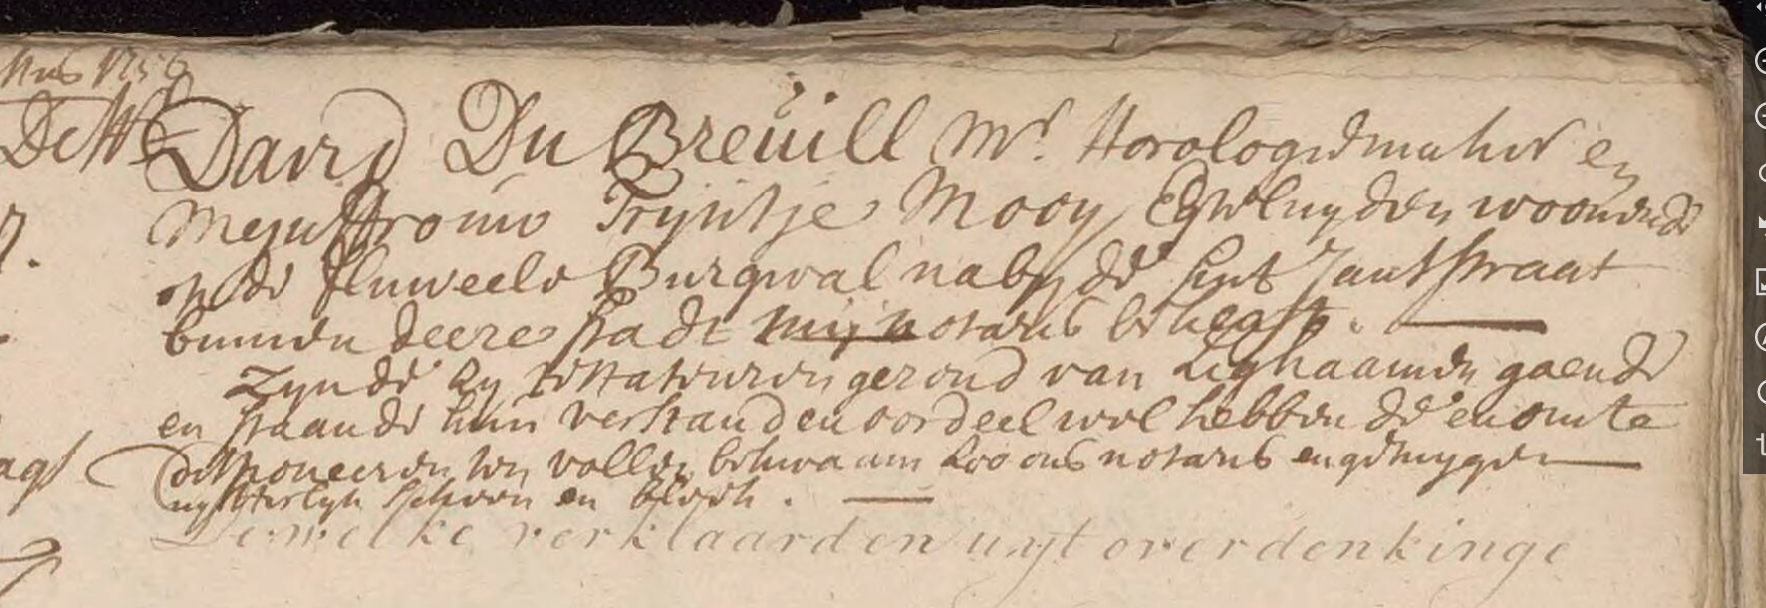 1756
David Du Breüill Mr. Horologiemaker en
Mejuffrouw Tryntje Mooy Egteluyden woonende
op de fluweele Burgwal naby de Sint Jantstraat
binnen deeze stadt mijn notaris bekent.
Zynde zy Testateuren gezond van Lighaamen gaende
en staande hun verstand en oordeel wel hebbende en om te
disponeeren ten vollen bekwaam zoo ons notaris en getuygen
uytterlyk scheen en bleek.
Dewelke verklaarden uyt overdenkinge